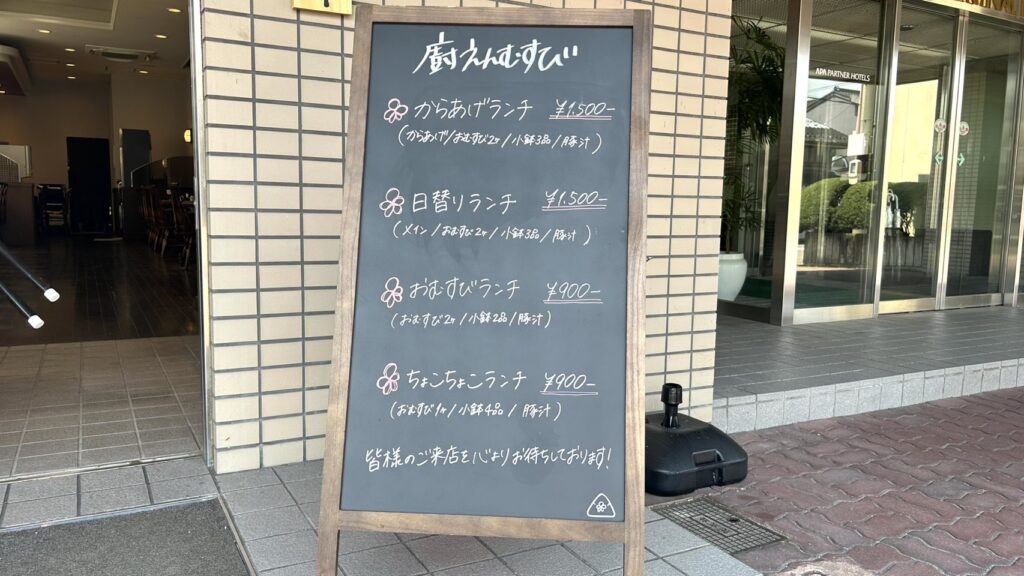 廚えんむすび
からあげランチ ¥1.500-
(からあげ/おむすび2ヶ/小鉢3品/豚汁)
日替りランチ ¥1.500-
(メイン/おむすび2ヶ/小鉢3品/豚汁)
おむすびランチ ¥900-
(おむすび2ヶ/小鉢2品/豚汁)
ちょこちょこランチ ¥900-
(おむすび1ヶ/小鉢4品/豚汁)
皆様のご来店を心よりお待ちしております!
APA PARTNER HOTELS